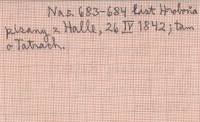 Na s. 683-684 list Hroboňa
pisany z Halle, 26 IV 1842; tam
o Tatrach.